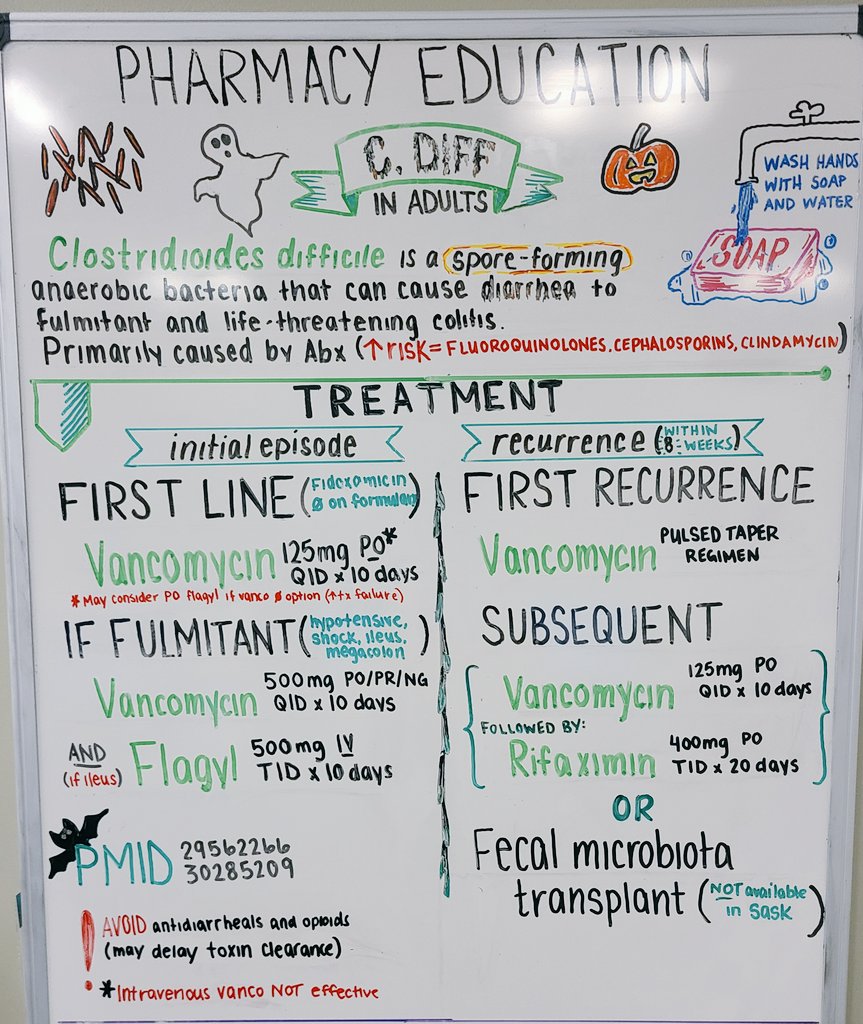 PHARMACY EDUCATION
C. DIFF
IN ADULTS
WASH HANDS
WITH SOAP
AND WATER
SOAP
Clostridioides difficile is a spore-forming
anaerobic bacteria that can cause diarrhea to
fulmitant and life-threatening colitis.
Primarily caused by Abx (↑risk = FLUOROQUINOLONES, CEPHALOSPORINS, CLINDAMYCIN)
TREATMENT
initial episode
FIRST LINE (Fidoxomicin
Ø on formulary)
Vancomycin 125mg PO*
QID x 10 days
*May consider PO flagyl if vanco Ø option (↑tx failure)
IF FULMITANT (hypotensive,
shock, ileus,
megacolon)
Vancomycin 500mg PO/PR/NG
QID x 10 days
AND
(if ileus) Flagyl 500mg IV
TID x 10 days
PMID 29562266
30285209
! AVOID antidiarrheals and opioids
(may delay toxin clearance)
*Intravenous vanco NOT effective
recurrence (WITHIN
8 WEEKS)
FIRST RECURRENCE
Vancomycin PULSED TAPER
REGIMEN
SUBSEQUENT
Vancomycin 125mg PO
QID x 10 days
FOLLOWED BY:
Rifaximin 400mg PO
TID x 20 days
OR
Fecal microbiota
transplant (NOT available
in Sask)